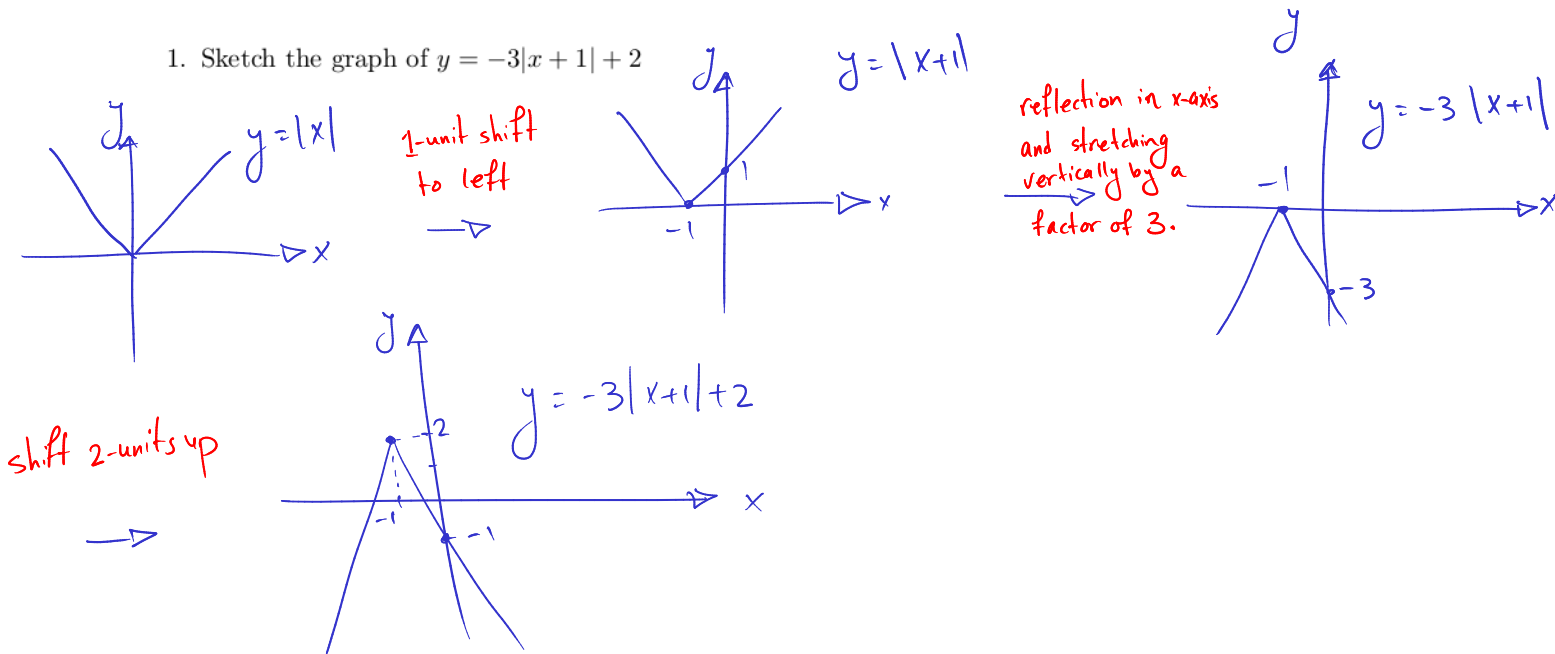 1. Sketch the graph of y = −3|x + 1| + 2
y
y=|x|
x
1-unit shift
to left
y
y=|x+1|
1
-1
x
reflection in x-axis
and stretching
vertically by a
factor of 3.
y
y=-3|x+1|
-1
x
-3
shift 2-units up
y
y=-3|x+1|+2
2
-1
x
-1